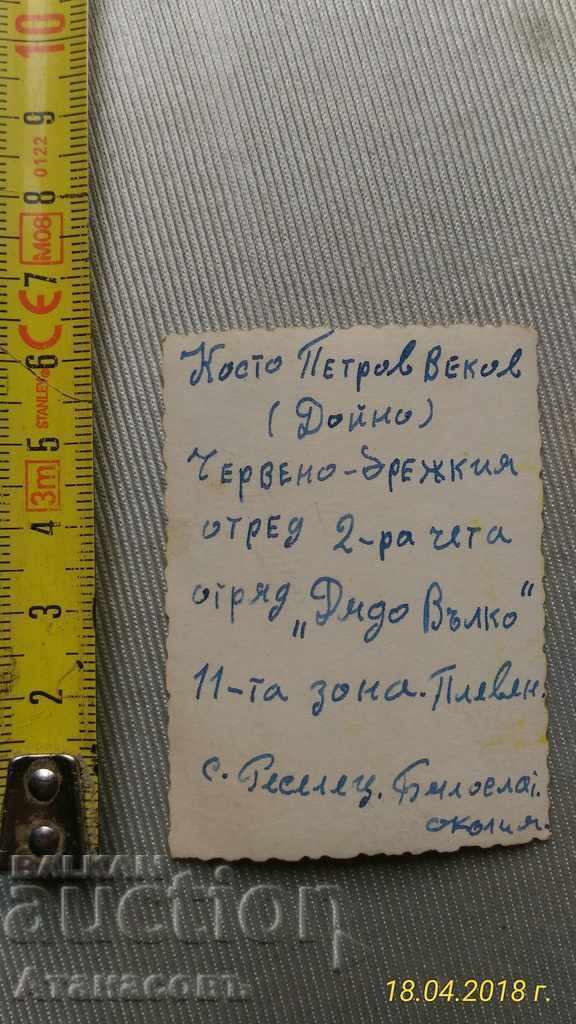 Косто Петров Веков
(Дойно)
Червено-брежкия
отред 2-ра чета
отряд „Дядо Вълко"
11-та зона. Плевен.
с. Реселец. Бялослат.
околия.
10
9
8
7
6
5
4
3
2
0122
M08
CE
STANLEY®
3m
BALKAN
auction
Атанасовъ
18.04.2018 г.